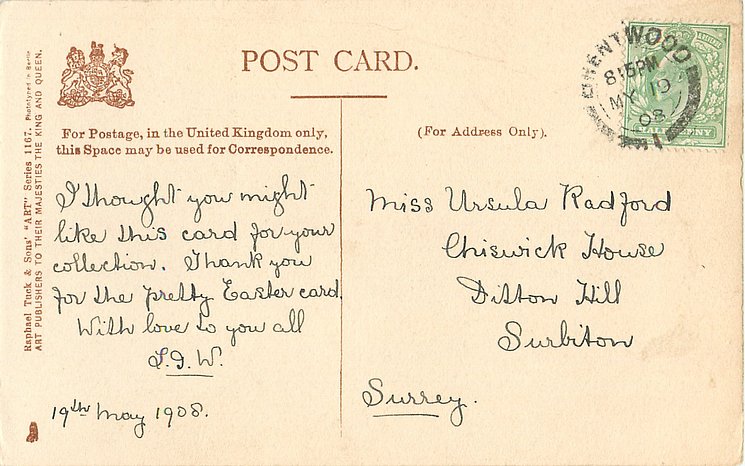 POST CARD.
For Postage, in the United Kingdom only,
this Space may be used for Correspondence.
(For Address Only).
BRENTWOOD
8 15 PM
MY 19
08
HALFPENNY
I thought you might
like this card for your
collection. Thank you
for the pretty Easter card.
With love to you all
L.I.W.
19th May 1908.
Miss Ursula Radford
Chiswick House
Ditton Hill
Surbiton
Surrey.
Raphael Tuck & Sons' "ART" Series 1167. Photogravure in Berlin
ART PUBLISHERS TO THEIR MAJESTIES THE KING AND QUEEN.